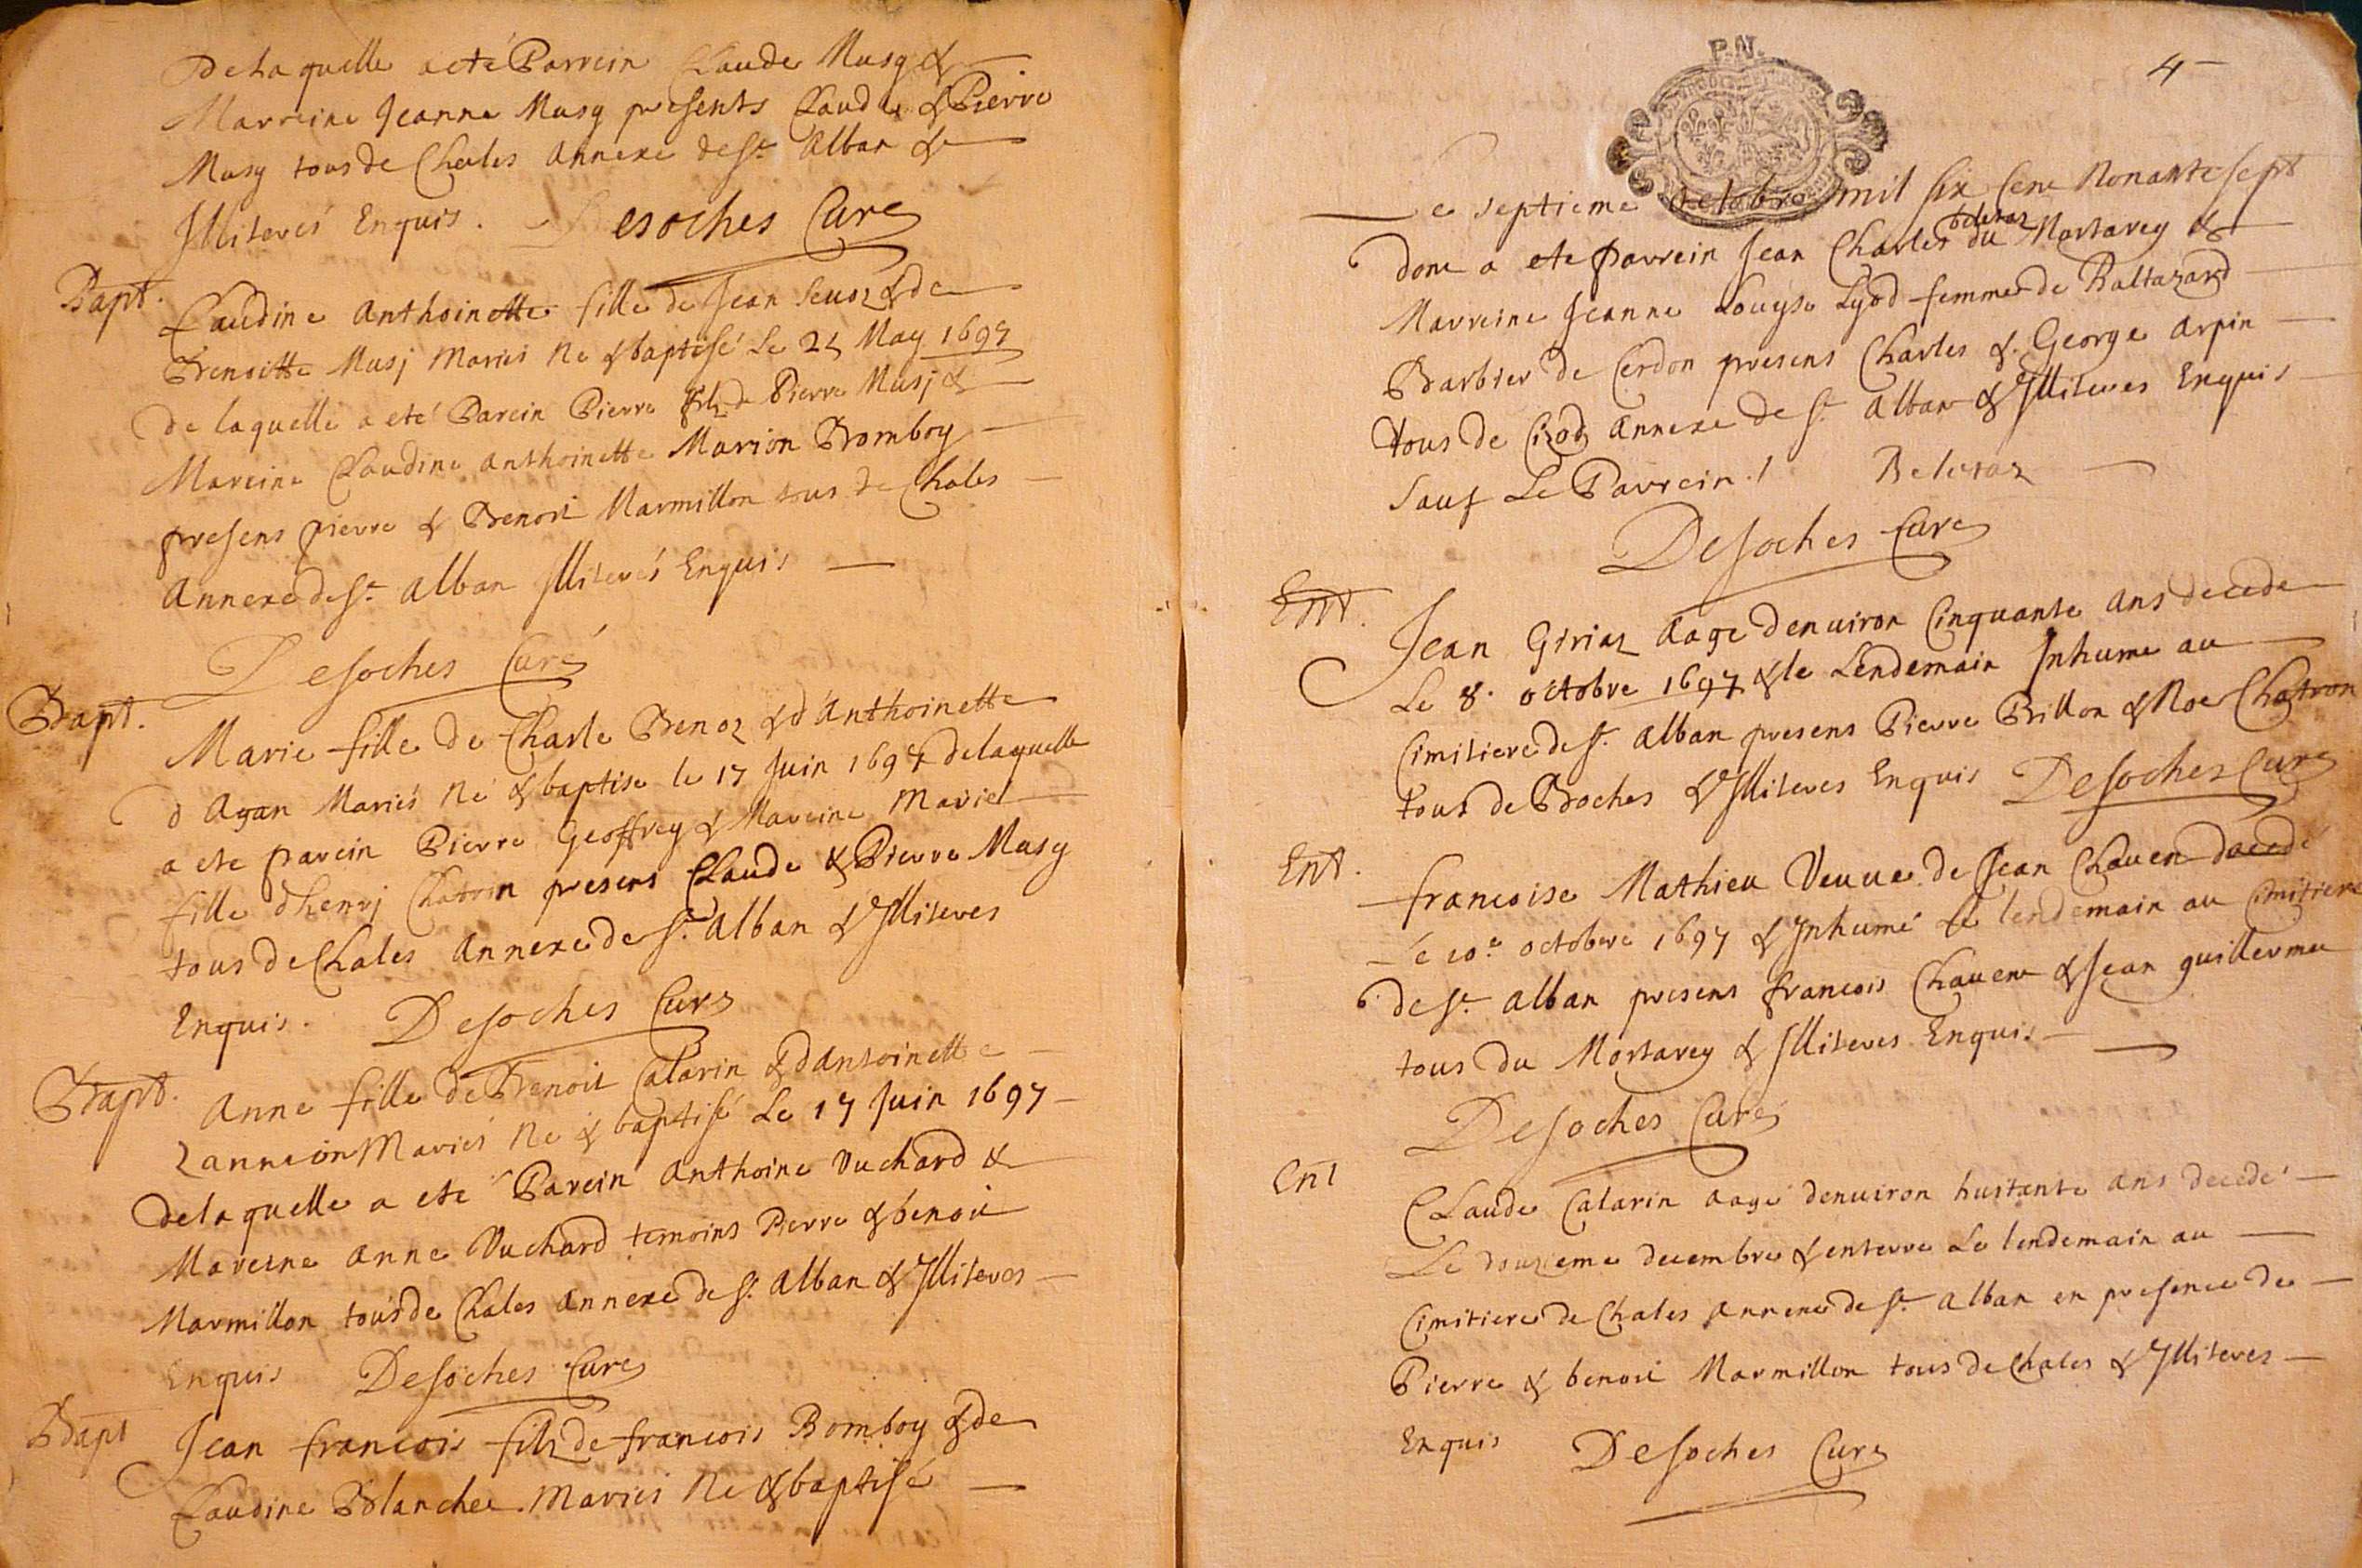 De laquelle a eté Parrein Claude Musy &
Marreine Jeanne Musy presents Claude & Pierre
Musy tous de Chales annexe de St. Alban &
Illiterés Enquis. Desoches Curé
Bapt. Claudine Anthoinette fille de Jean &de
Benoitte Musj Mariés Né & baptisé Le May 1697
de laquelle a eté Parein Pierre filz de Pierre Musj &
Mareine Claudine Anthoinette Marion Bomboy
presens pierre & Benoit Marmillon tous de Chales
Annexe de St. Alban Illiterés Enquis
Desoches Curé
Bapt. Marie fille de Charle Benoz & d'Anthoinette
d Agan Mariés Né & baptise le 17 Juin 1697 de laquelle
a ete parein Pierre Geoffrey & Mareine Marie
fille dhenrj Chatron presens Claude & Pierre Musy
tous de Chales Annexe de St. Alban & Illiteres
Enquis. Desoches Curé
Bapt. Anne fille de Benoit Catarin & dantoinette
Mariés Né & baptisé Le 17 Juin 1697
de laquelle a eté Parein Anthoine Vuchard &
Mareine Anne Vuchard temoins Pierre & benoit
Marmillon tous de Chales annexe de St. Alban & Illiteres
Enquis Desoches Curé
Bapt Jean francois filz de francois Bomboy & de
Claudine Blanchee Mariés Né & baptisé
P.N.
4
Le septieme octobre mil six Cent Nonante sept
dont a ete parrein Jean Charles Beletaz du Mortarey &
Marreine Jeanne Louyse Lyod femme de Baltazard
Barbier de Cerdon presens Charles & George Arpin
tous de Cizod Annexe de St. Alban & Illiteres Enquis
Sauf Le Parrein. / Beletaz
Desoches Curé
Ent. Jean Giriaz Aage denuiron Cinquante Ans decede
Le 8. octobre 1697 & le Lendemain Inhume au
Cimitiere de St. Alban presens Pierre Billon & Noe Chatron
tous de Boches & Illiteres Enquis Desoches Curé
Ent. francoise Mathieu Veuue de Jean Chauen decedé
Le 10e octobre 1697 & Inhumé Le lendemain au Cimitiere
de St. Alban presens francois Chauen & Jean guillermee
tous du Mortarey & Illiteres Enquis
Desoches Curé
Ent Claude Catarin aagé denuiron huitante ans decedé
Le douzieme decembre & enterre Le lendemain au
Cimitiere de Chales Annexe de St. Alban en presence de
Pierre & benoit Marmillon tous de Chales & Illiteres
Enquis Desoches Curé